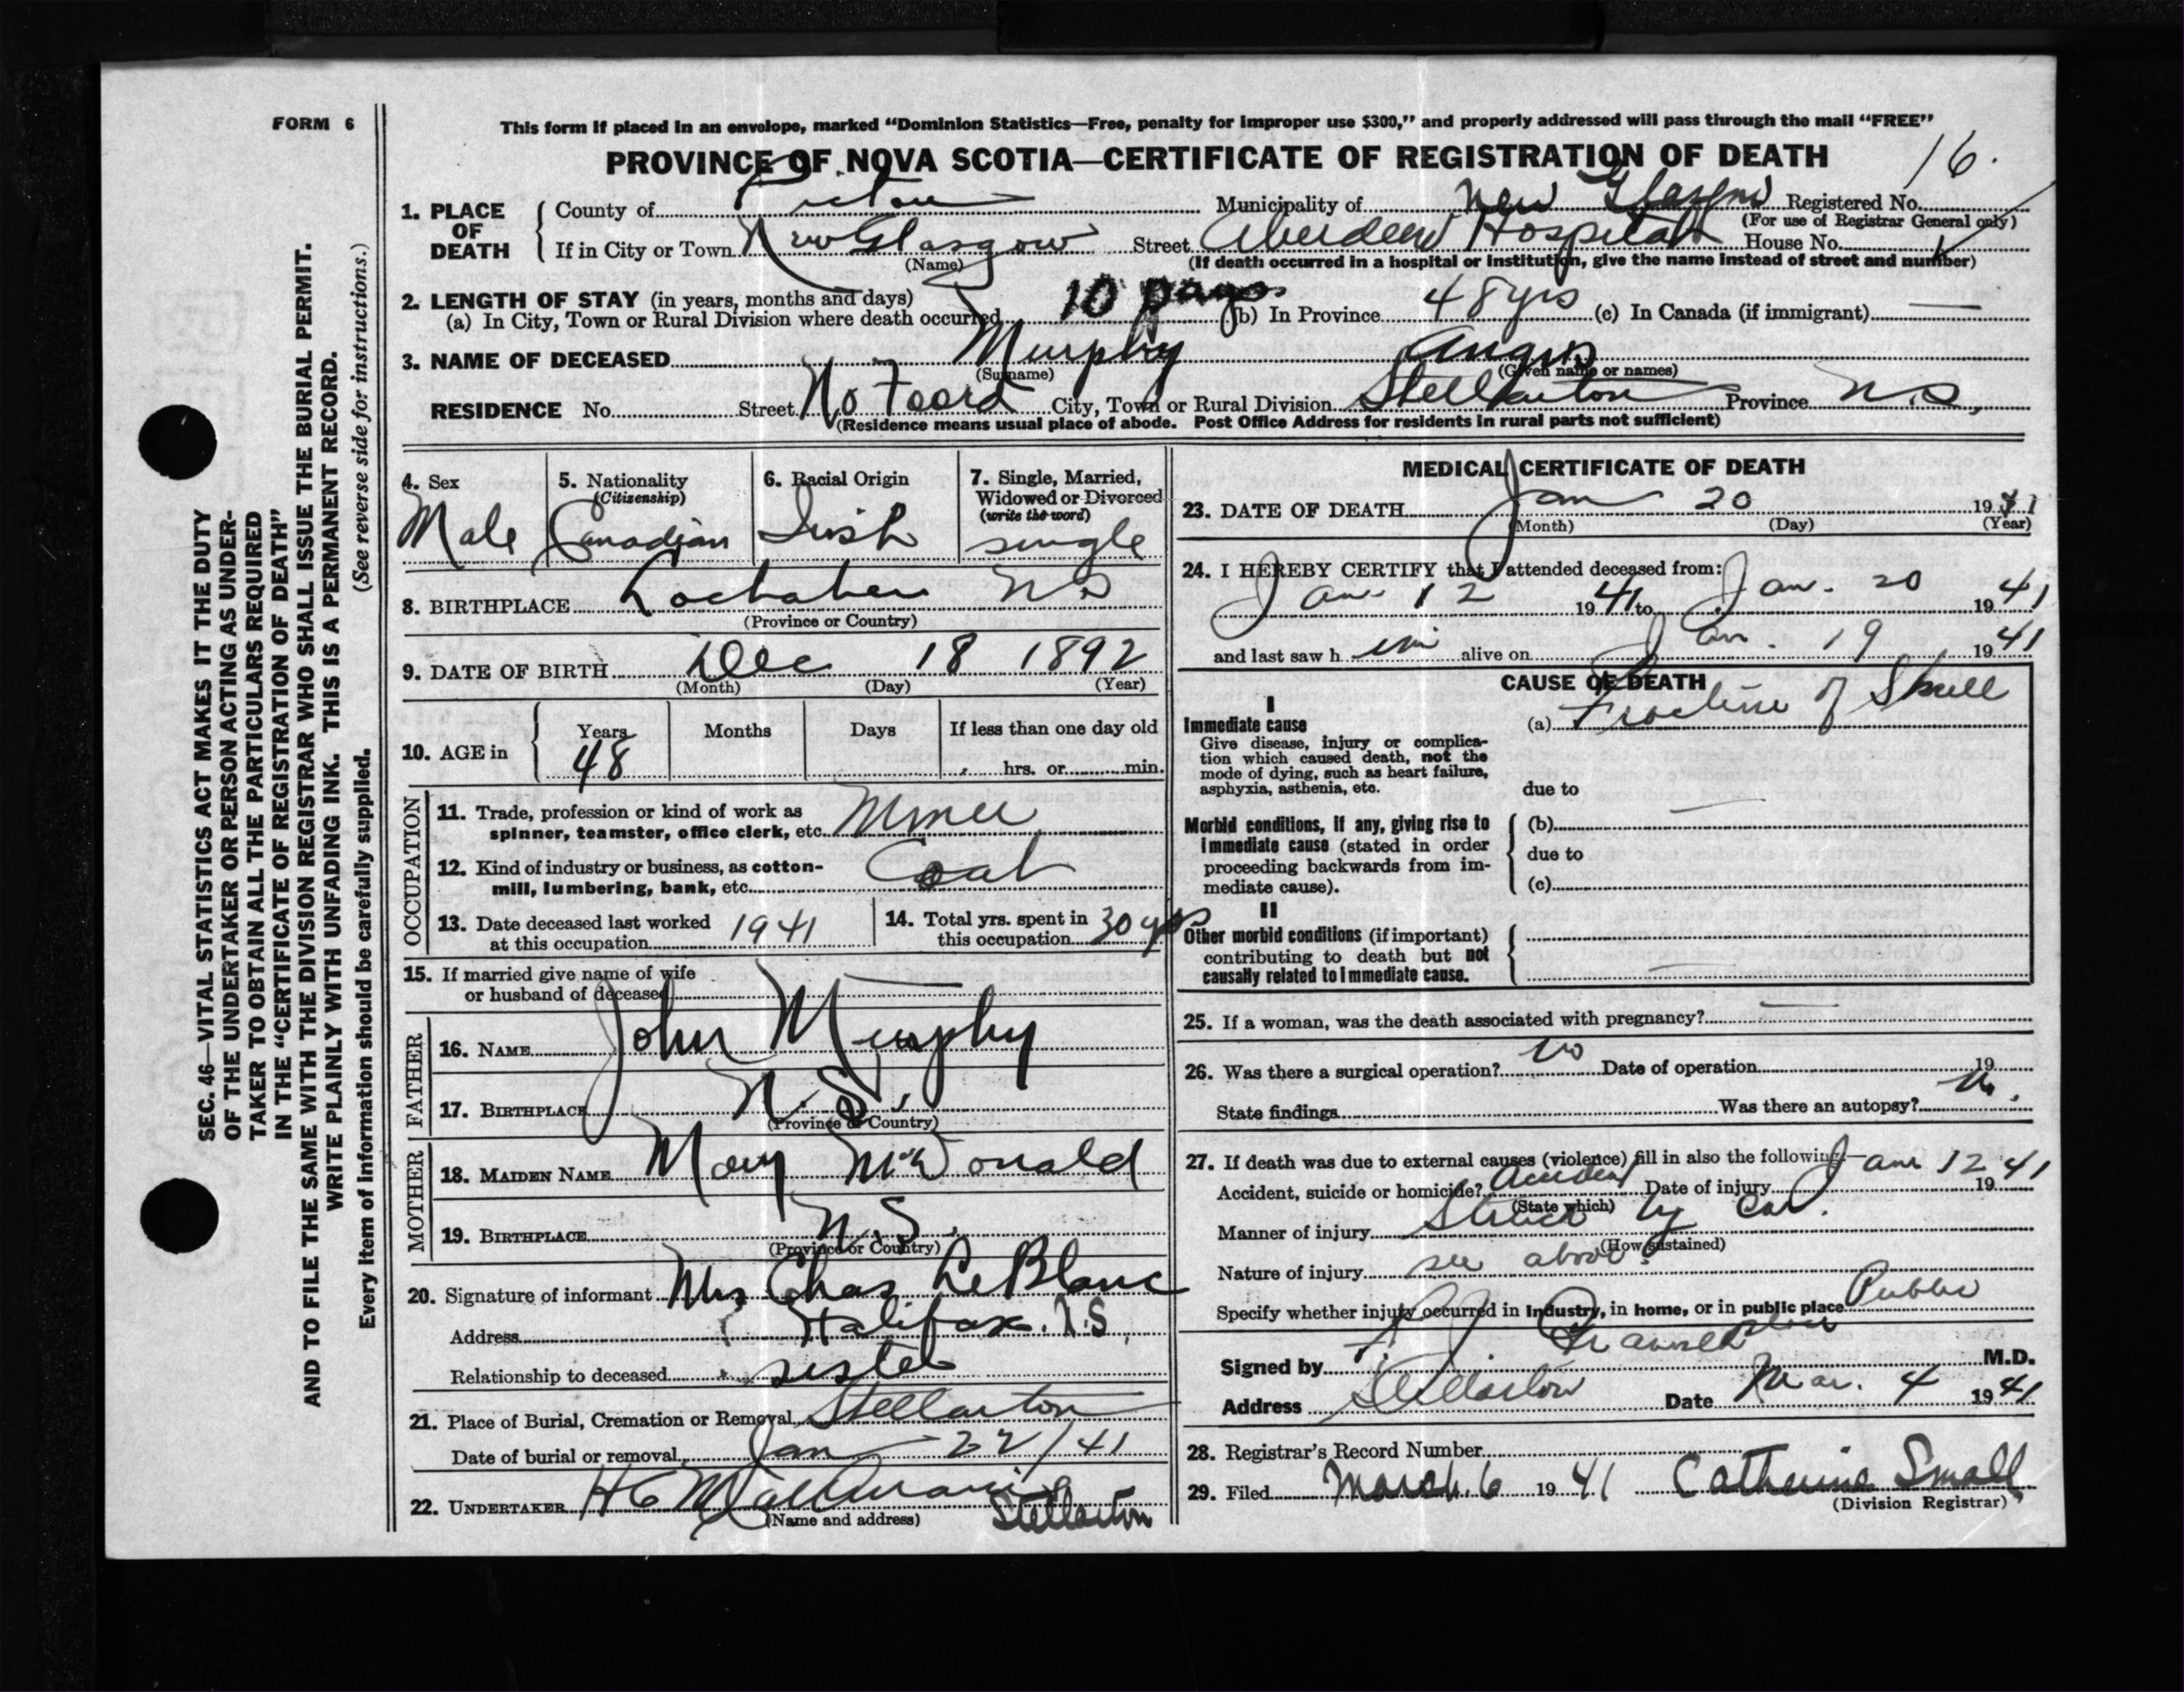 FORM 6
This form if placed in an envelope, marked "Dominion Statistics—Free, penalty for improper use $300," and properly addressed will pass through the mail "FREE"
PROVINCE OF NOVA SCOTIA—CERTIFICATE OF REGISTRATION OF DEATH
16.
1. PLACE OF DEATH
County of Pictou Municipality of New Glasgow Registered No.
(For use of Registrar General only)
If in City or Town New Glasgow Street Aberdeen Hospital House No.
(Name)
(If death occurred in a hospital or institution, give the name instead of street and number)
2. LENGTH OF STAY (in years, months and days)
(a) In City, Town or Rural Division where death occurred 10 Days (b) In Province 48 yrs (c) In Canada (if immigrant) —
3. NAME OF DECEASED Murphy Angus
(Surname) (Given name or names)
RESIDENCE No. Street No Foord City, Town or Rural Division Stellarton Province N.S.
(Residence means usual place of abode. Post Office Address for residents in rural parts not sufficient)
4. Sex
Male
5. Nationality
(Citizenship)
Canadian
6. Racial Origin
Irish
7. Single, Married,
Widowed or Divorced
(write the word)
single
8. BIRTHPLACE Lochaber N S
(Province or Country)
9. DATE OF BIRTH Dec 18 1892
(Month) (Day) (Year)
10. AGE in
Years Months Days If less than one day old
48 hrs. or min.
OCCUPATION
11. Trade, profession or kind of work as
spinner, teamster, office clerk, etc. Miner
12. Kind of industry or business, as cotton-
mill, lumbering, bank, etc. Coal
13. Date deceased last worked
at this occupation 1941
14. Total yrs. spent in
this occupation 30 yrs
15. If married give name of wife
or husband of deceased —
FATHER
16. NAME John Murphy
17. BIRTHPLACE N.S.
(Province or Country)
MOTHER
18. MAIDEN NAME Mary McDonald
19. BIRTHPLACE N.S.
(Province or Country)
20. Signature of informant Mrs Chas LeBlanc
Address Halifax. N.S.
Relationship to deceased sister
21. Place of Burial, Cremation or Removal Stellarton
Date of burial or removal Jan 22/41
22. UNDERTAKER H C
(Name and address) Stellarton
MEDICAL CERTIFICATE OF DEATH
23. DATE OF DEATH Jan 20 1941
(Month) (Day) (Year)
24. I HEREBY CERTIFY that I attended deceased from:
Jan. 12 1941 to Jan. 20 1941
and last saw h im alive on Jan. 19 1941
CAUSE OF DEATH
I
Immediate cause
Give disease, injury or complica-
tion which caused death, not the
mode of dying, such as heart failure,
asphyxia, asthenia, etc.
(a) Fracture of Skull
due to
Morbid conditions, if any, giving rise to
immediate cause (stated in order
proceeding backwards from im-
mediate cause).
(b) —
due to
(c)
II
Other morbid conditions (if important)
contributing to death but not
causally related to immediate cause.
—
25. If a woman, was the death associated with pregnancy? —
26. Was there a surgical operation? no Date of operation 19
State findings Was there an autopsy? no.
27. If death was due to external causes (violence) fill in also the following:—
Accident, suicide or homicide? Accident Date of injury Jan 12 1941
(State which)
Manner of injury Struck by Car.
(How sustained)
Nature of injury see above.
Specify whether injury occurred in Industry, in home, or in public place Public place
Signed by M.D.
Address Stellarton Date Mar. 4 1941
28. Registrar's Record Number
29. Filed March 6 1941 Catherine Small
(Division Registrar)
SEC. 46—VITAL STATISTICS ACT MAKES IT THE DUTY
OF THE UNDERTAKER OR PERSON ACTING AS UNDER-
TAKER TO OBTAIN ALL THE PARTICULARS REQUIRED
IN THE "CERTIFICATE OF REGISTRATION OF DEATH"
AND TO FILE THE SAME WITH THE DIVISION REGISTRAR WHO SHALL ISSUE THE BURIAL PERMIT.
WRITE PLAINLY WITH UNFADING INK. THIS IS A PERMANENT RECORD.
Every item of information should be carefully supplied. (See reverse side for instructions.)